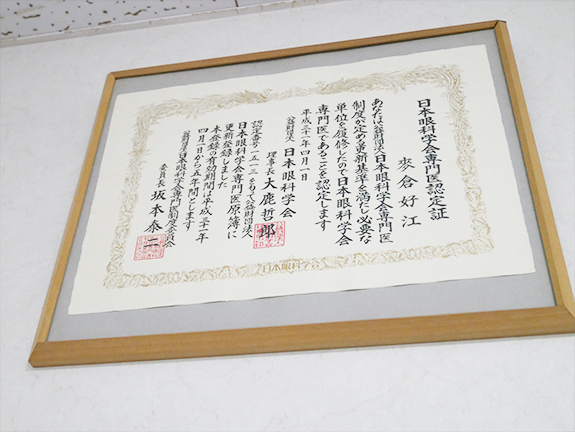 日本眼科学会専門医認定証
麥倉好江
あなたは公益財団法人日本眼科学会専門医
制度が定める更新基準を満たし必要な
単位を履修したので日本眼科学会
専門医であることを認定します
平成三十一年四月一日
公益財団法人 日本眼科学会
理事長 大鹿哲郎
認定番号一五一三をもって公益財団法人
日本眼科学会専門医原簿に
更新登録しました
本登録の有効期間は平成三十一年
四月一日から五年間とします
公益財団法人日本眼科学会専門医制度委員会
委員長 坂本泰二
日本眼科学会